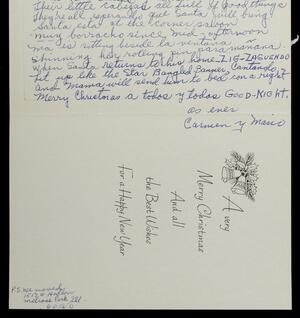 Their little cabezas all full of good things
They're all esperando que Santa will bring
Santa esta at the corner saloon
muy borracho since mid-afternoon
ma is sitting beside la ventana
Shinning her rolling pin para manana
When Santa returns to his home ZIG-ZAGUENDO
lit up like the Star Bangled Banner Cantando,
and Mama will send him to bed con a right
Merry Christmas a todos y todas GOOD-NIGHT.
Carmen y
A very
Merry Christmas
And all
the Best Wishes
For a Happy New Year
P.S. we moved
Melrose Park Ill.
60160